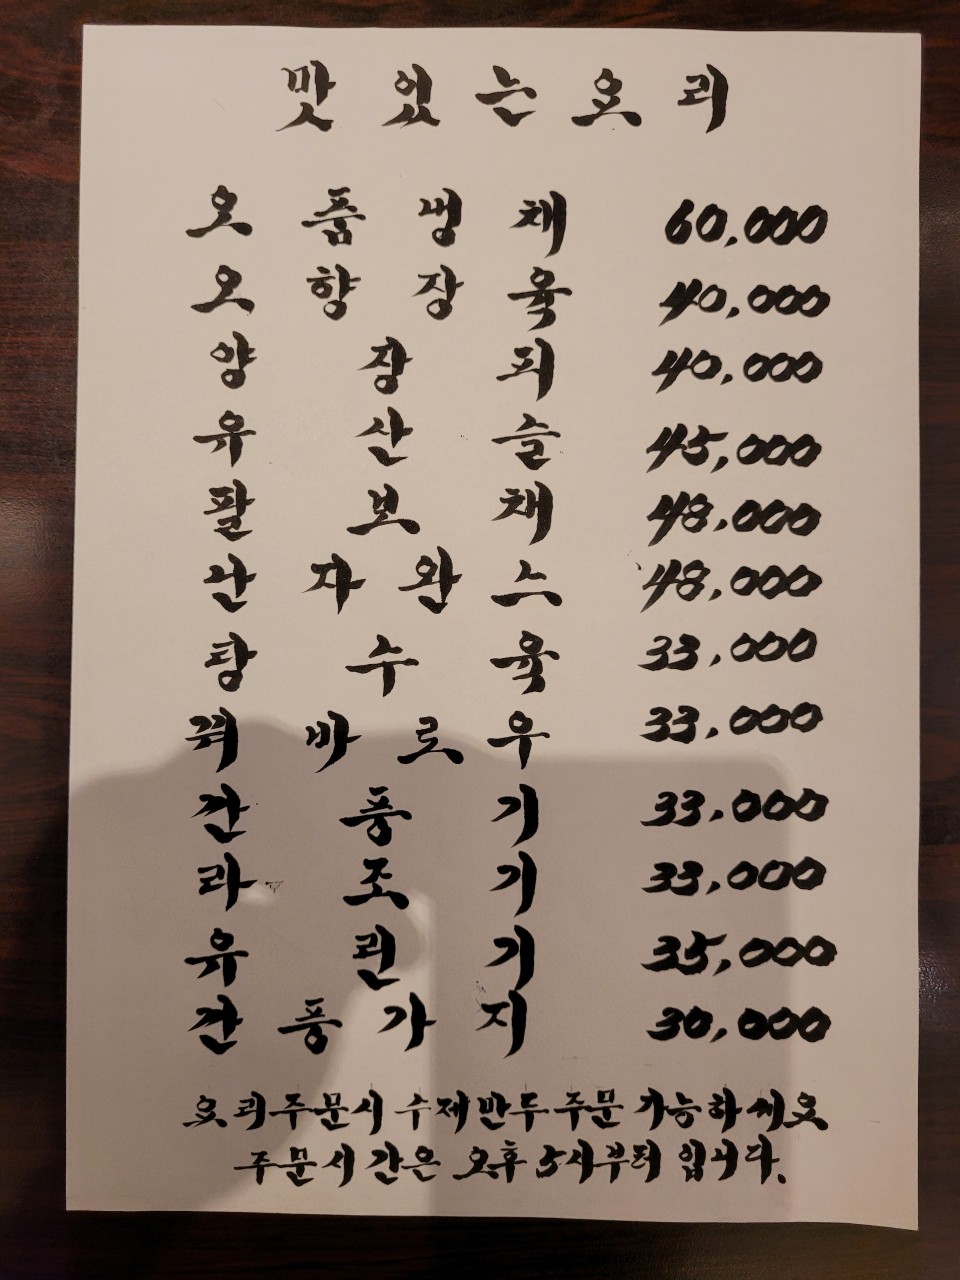 맛있는요리
오품냉채 60,000
오향장육 40,000
양장피 40,000
유산슬 45,000
팔보채 48,000
난자완스 48,000
탕수육 33,000
꿔바로우 33,000
깐풍기 33,000
라조기 33,000
유린기 35,000
깐풍가지 30,000
요리주문시 수제만두주문 가능하세요
주문시간은 오후 5시부터 입니다.